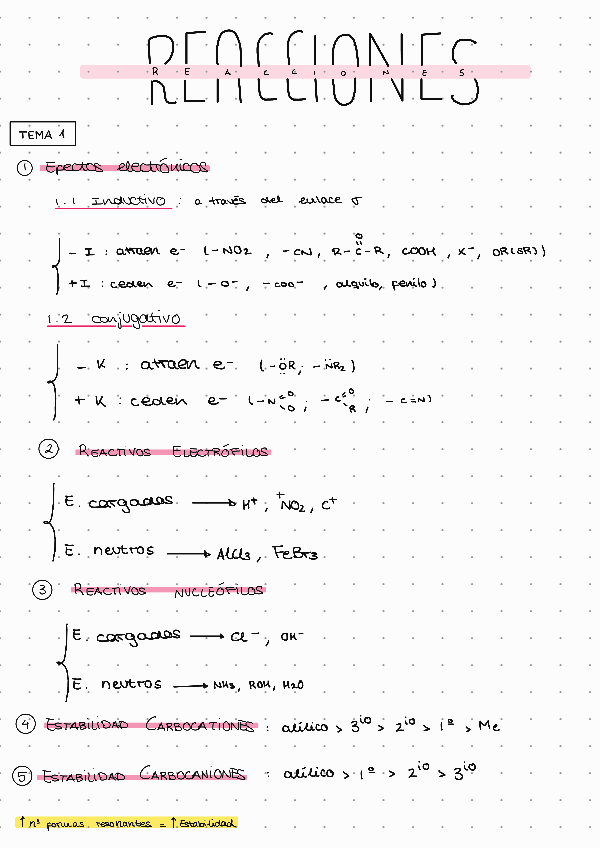 REACCIONES
REACCIONES
TEMA 1
① Efectos electrónicos
1.1 Inductivo : a través del enlace σ
- I : atraen e- (-NO2 , -CN, R-C-R, COOH , X-, OR(SR))
Ö
+I : ceden e- (-O-, -COO- , alquilo, fenilo)
1.2 conjugativo
- K : atraen e- (-ÖR, -N̈R2)
+ K : ceden e- (-N=O O ; -C=O R ; - C≡N)
② REACTIVOS ELECTRÓFILOS
E. cargados → H+ , +NO2 , C+
E. neutros → AlCl3 , FeBr3
③ REACTIVOS NUCLEÓFILOS
E. cargados → Cl-, OH-
E. neutros → NH3, ROH, H2O
④ ESTABILIDAD CARBOCATIONES : alílico > 3io > 2io > 1º > Me
⑤ ESTABILIDAD CARBOCANIONES : alílico > 1º > 2io > 3io
↑ nº formas resonantes = ↑ Estabilidad